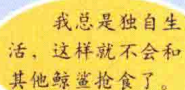 我总是独自生
活，这样就不会和
其他鲸鲨抢食了。